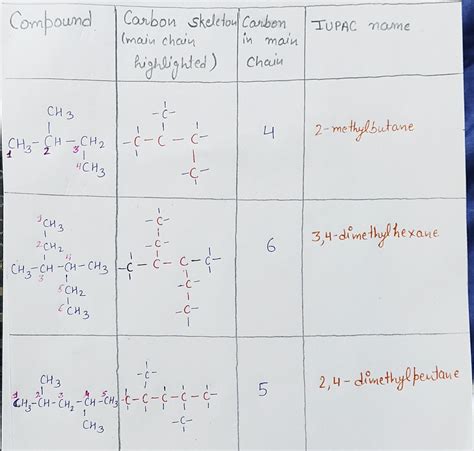 Compound
Carbon skeleton
(main chain
highlighted)
Carbon
in main
chain
IUPAC name
CH3
CH3-CH-CH2
1 2 3
4CH3
-C-
-C-C-C-
-C-
4
2-methylbutane
1CH3
2CH2
4
CH3-CH-CH-CH3
3
5CH2
6CH3
-C-
-C-
-C-C-C-C-
-C-
-C-
6
3,4-dimethylhexane
CH3
1 2 3 4 5
CH3-CH-CH2-CH-CH3
CH3
-C-
-C-C-C-C-C-
-C-
5
2,4-dimethylpentane